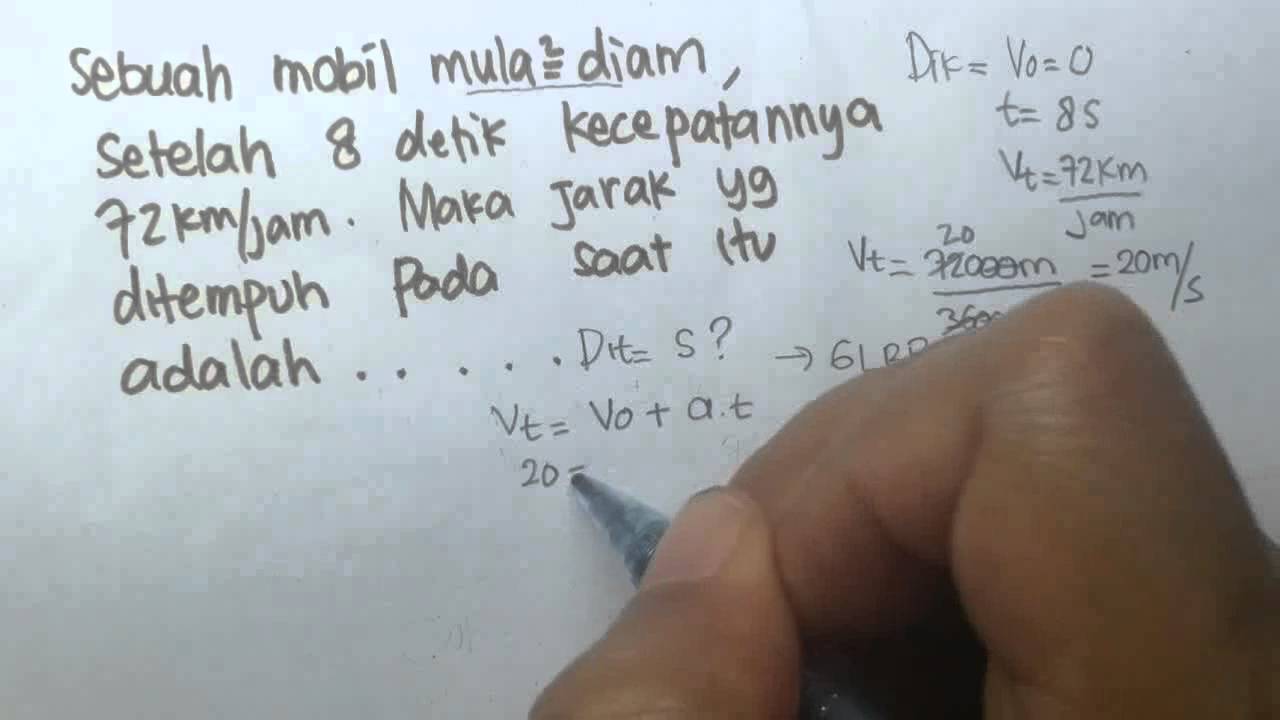 Sebuah mobil mula² diam,
Setelah 8 detik kecepatannya
72 km/jam. Maka jarak yg
ditempuh pada saat itu
adalah . . . . .
Dik = Vo = 0
t = 8s
Vt = 72 km
jam
20
Vt = 72000m = 20m/s
Dit = S?
Vt = Vo + a.t
20 =